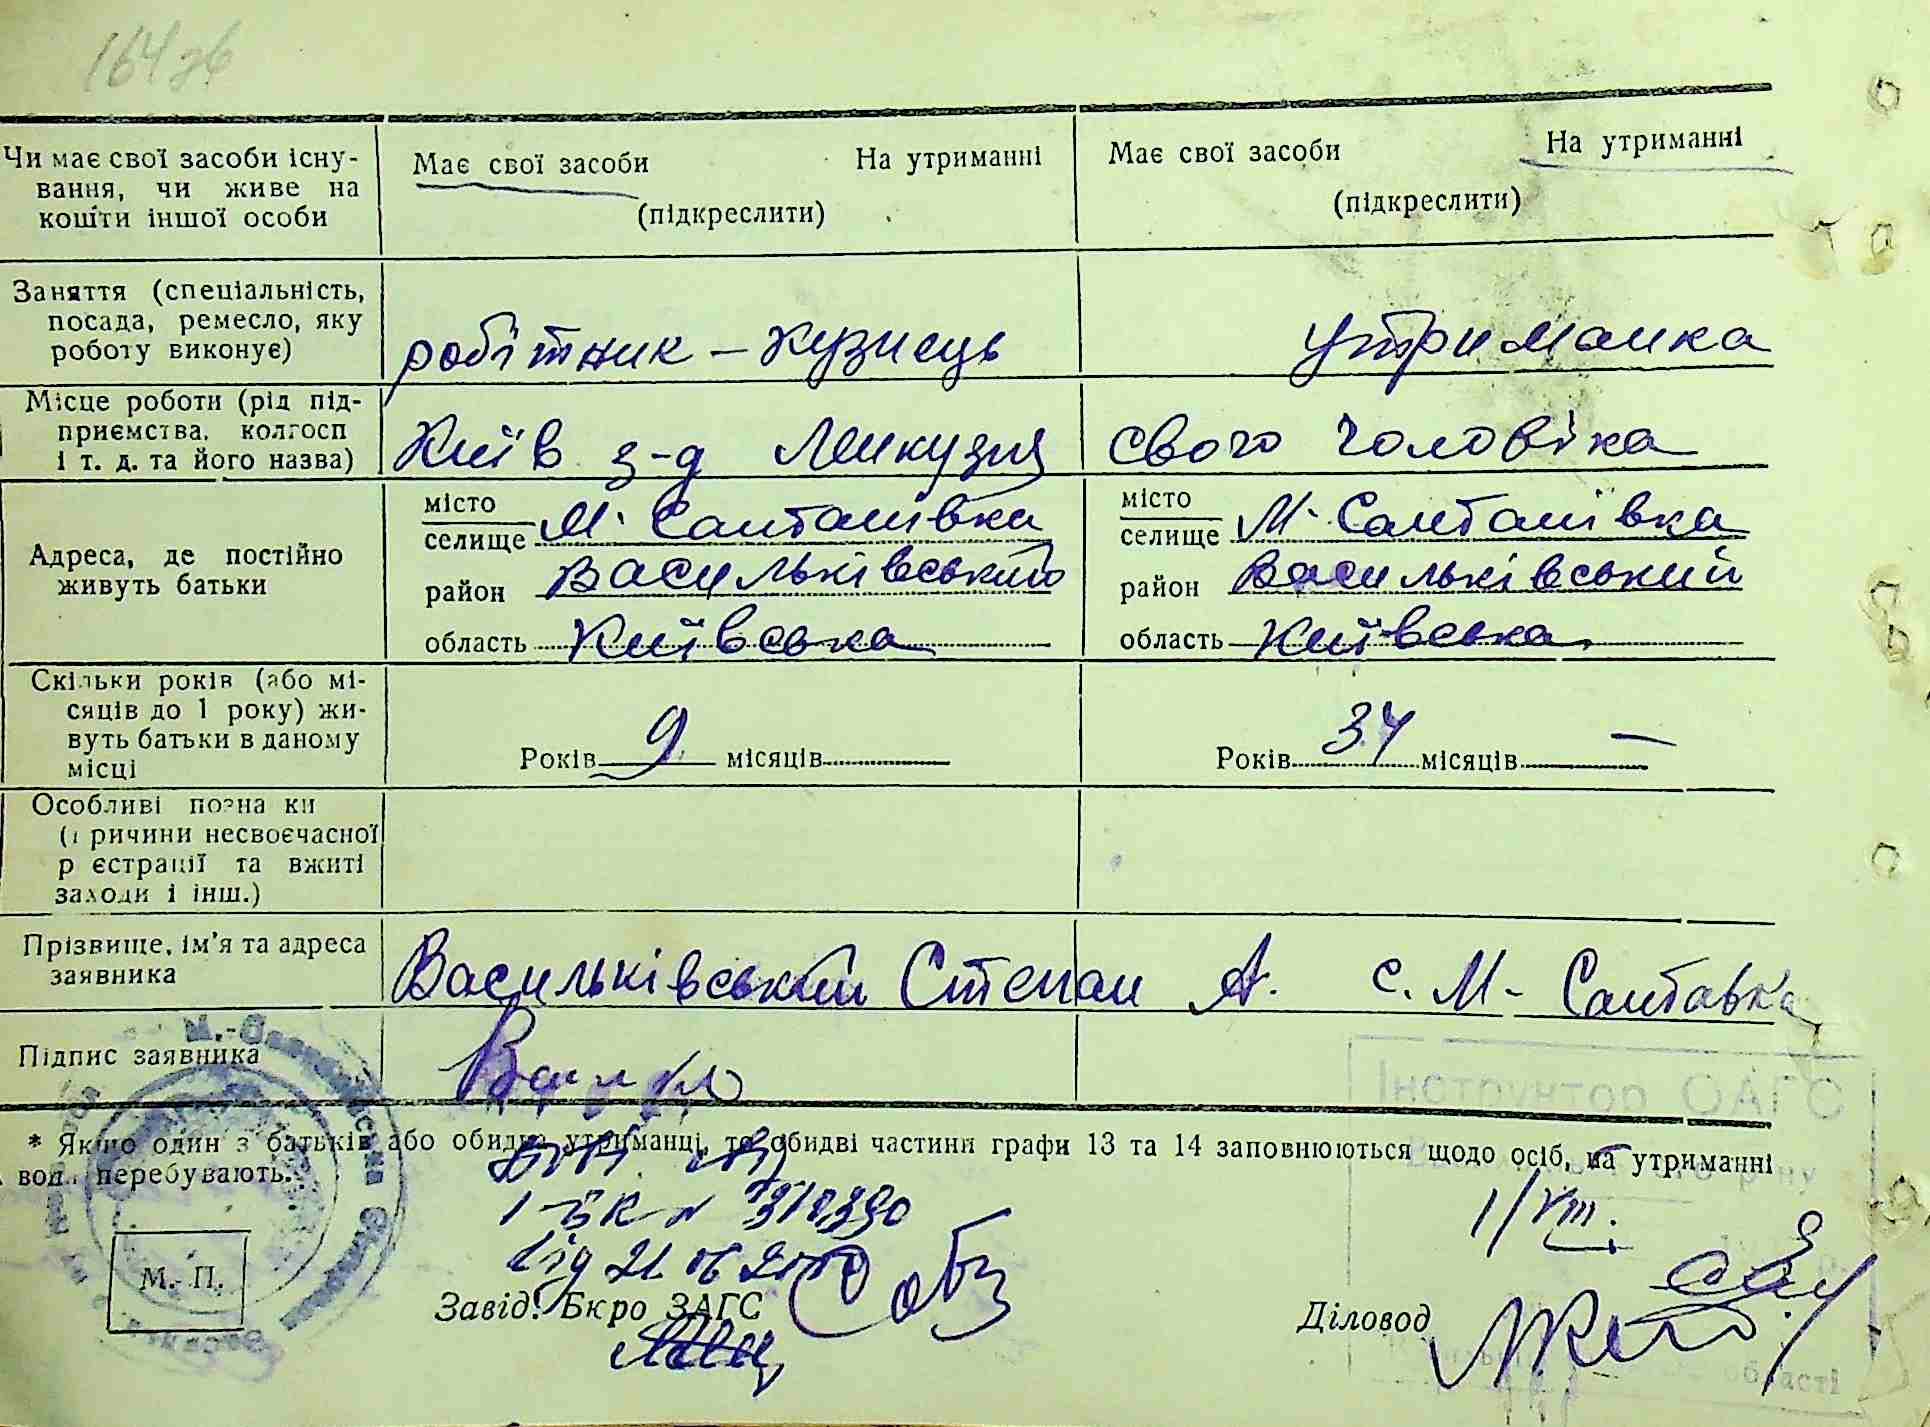 164зв
Чи має свої засоби існу-
вання, чи живе на
кошти іншої особи
Має свої засоби На утриманні
(підкреслити)
Має свої засоби На утриманні
(підкреслити)
Заняття (спеціальність,
посада, ремесло, яку
роботу виконує)
робітник – кузнець
утриманка
Місце роботи (рід під-
приємства, колгосп
і т. д. та його назва)
Київ з-д Ленкузня
свого чоловіка
Адреса, де постійно
живуть батьки
місто
селище М. Салтанівка
район Васильківського
область Київська
місто
селище М. Салтанівка
район Васильківський
область Київська
Скільки років (або мі-
сяців до 1 року) жи-
вуть батьки в даному
місці
Років 9 місяців
Років 34 місяців —
Особливі позна ки
( ричини несвоєчасної
р єстрації та вжиті
заходи і інш.)
Прізвище, ім'я та адреса
заявника
Васильківський Степан А. с. М-Салтавка
Підпис заявника
* Якщо один з батьків або обидва утриманці, то обидві частини графи 13 та 14 заповнюються щодо осіб, на утриманні
вони перебувають.
Інструктор ОАГС
1/VIII.
від 21
М. П.
Завід. Бюро ЗАГС
Діловод
області